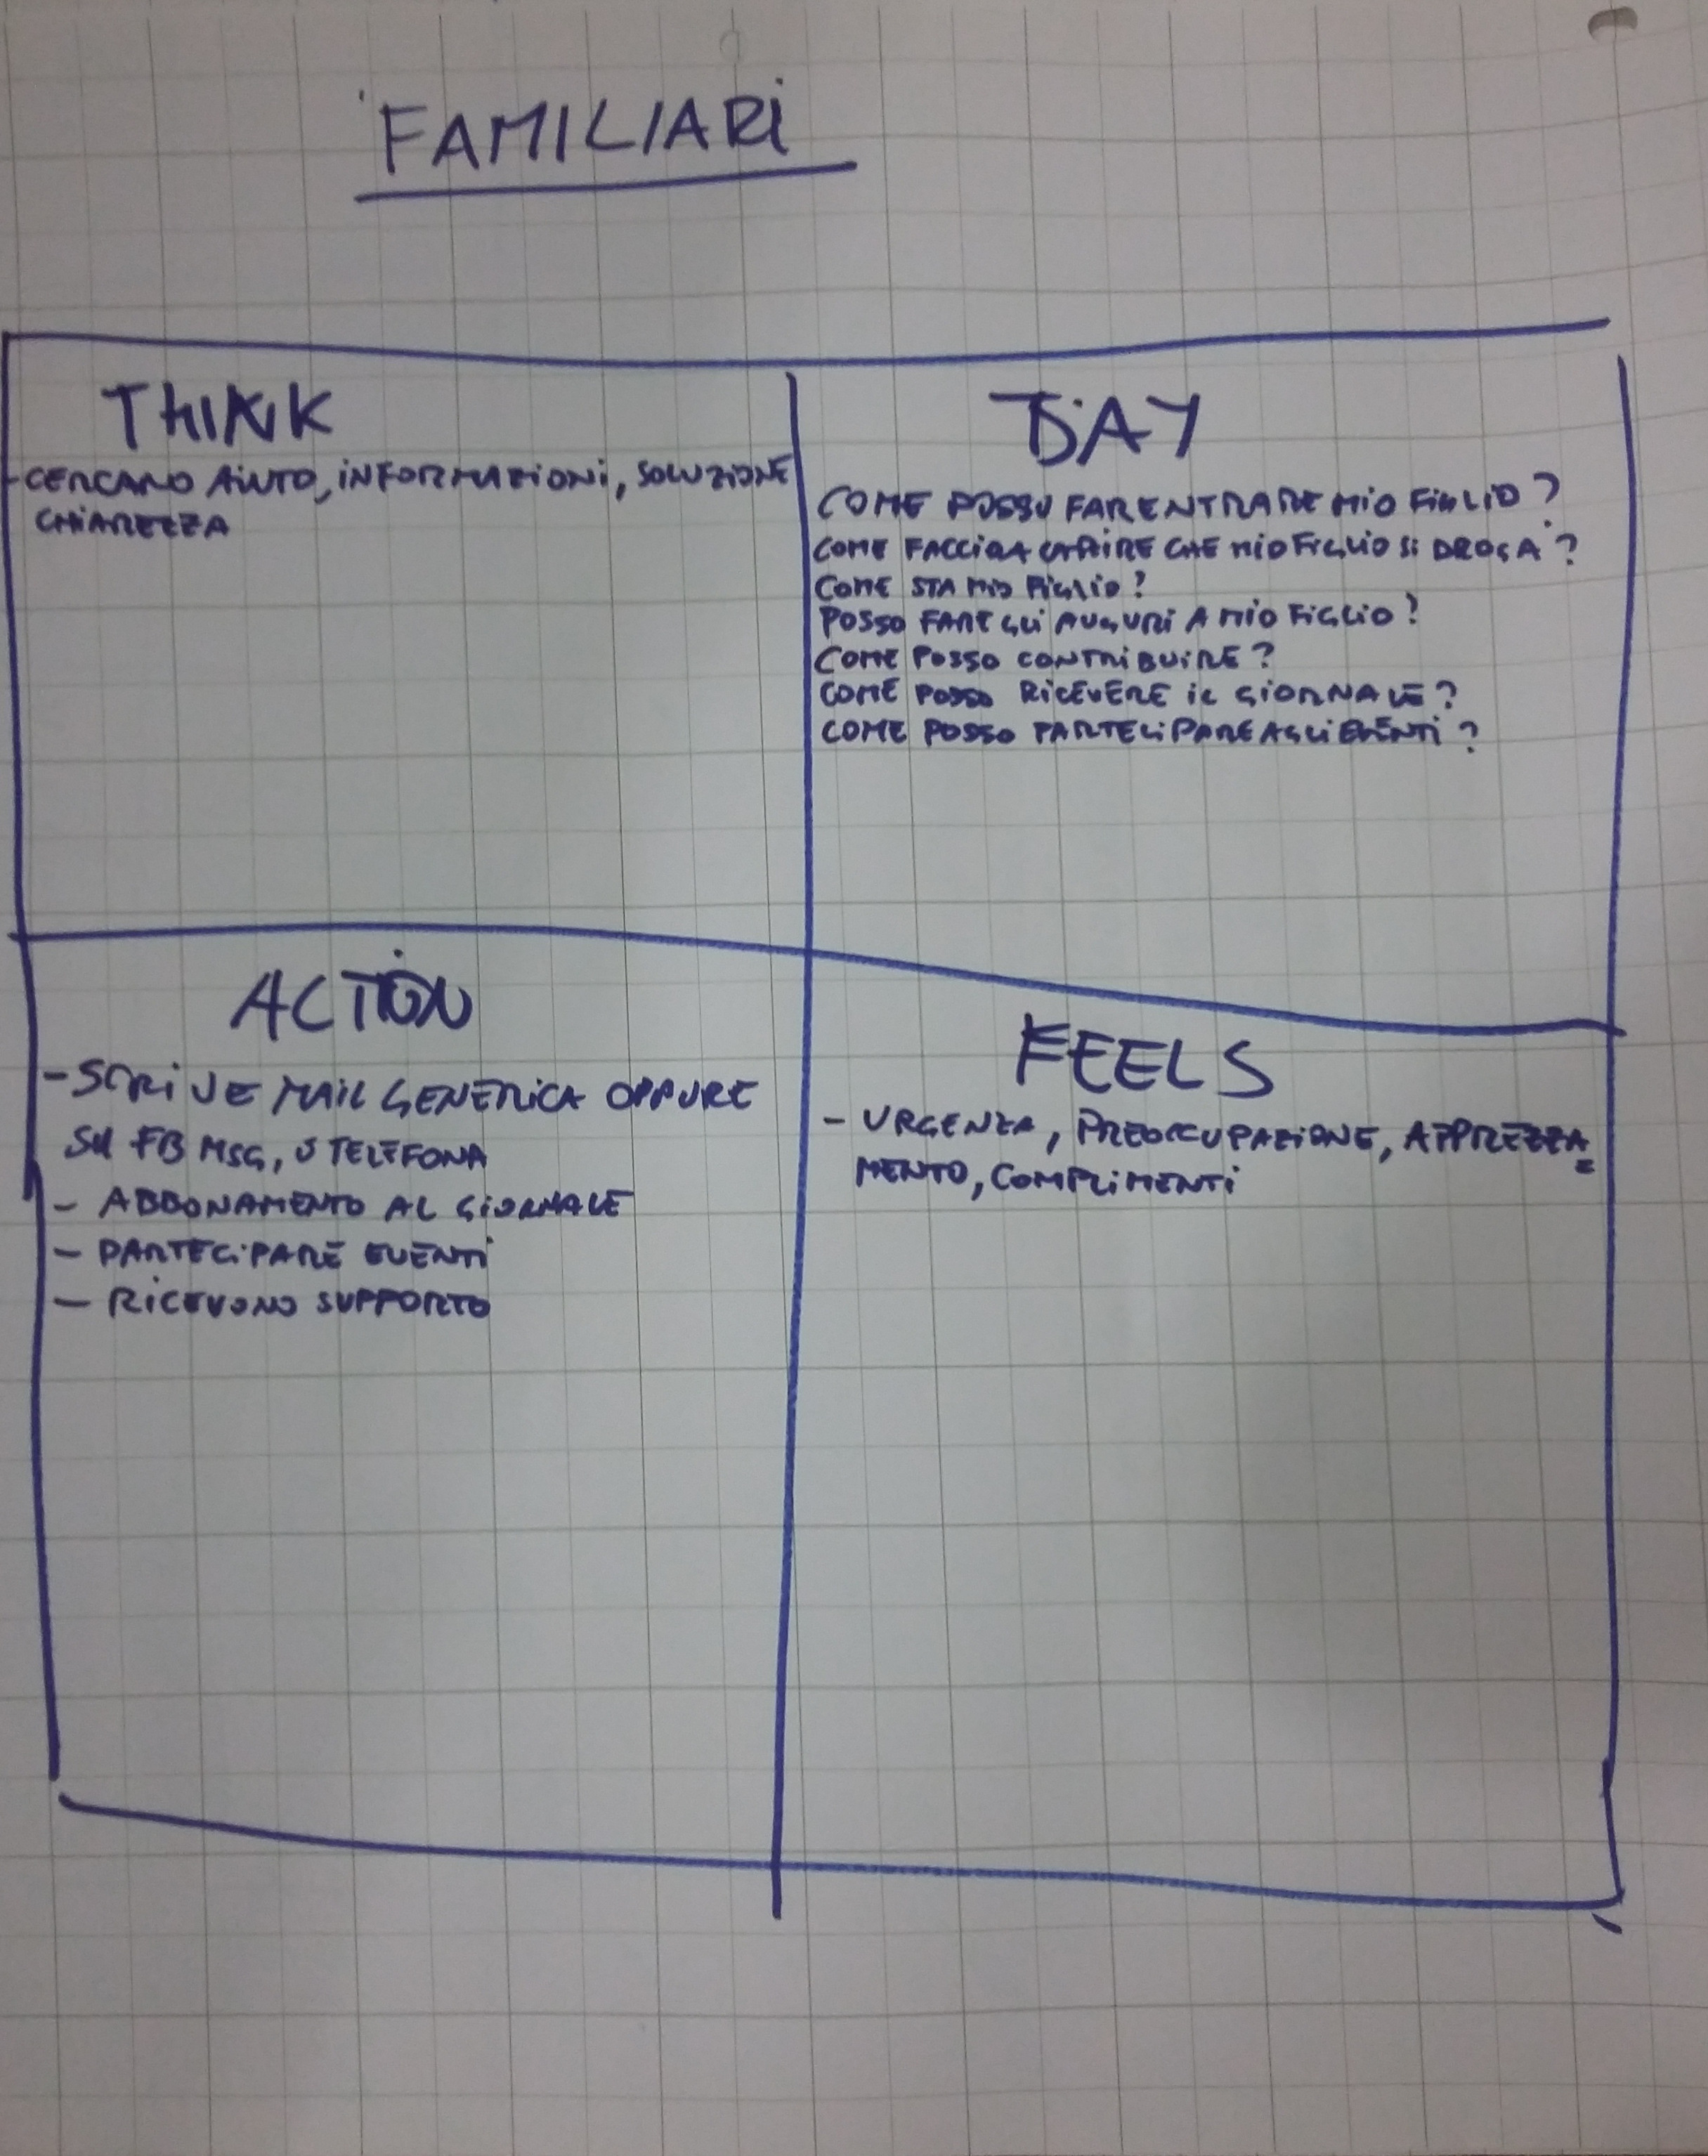 FAMILIARI
THINK
- CERCANO AIUTO, INFORMAZIONI, SOLUZIONE
CHIAREZZA
SAY
COME POSSO FAR ENTRARE MIO FIGLIO?
COME FACCIO A CAPIRE CHE MIO FIGLIO SI DROGA?
COME STA MIO FIGLIO?
POSSO FARE GLI AUGURI A MIO FIGLIO?
COME POSSO CONTRIBUIRE?
COME POSSO RICEVERE IL GIORNALE?
COME POSSO PARTECIPARE AGLI EVENTI?
ACTION
- SCRIVE MAIL GENERICA OPPURE
SU FB MSG, O TELEFONA
- ABBONAMENTO AL GIORNALE
- PARTECIPARE EVENTI
- RICEVONO SUPPORTO
FEELS
- URGENZA, PREOCCUPAZIONE, APPREZZA=
MENTO, COMPLIMENTI